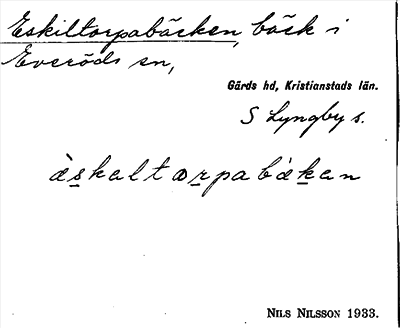 Eskiltorpabäcken, bäck i
Everöds sn,
Gärds hd, Kristianstads län.
S Lyngby s.
ä̀skaltɒrpabäkan
NILS NILSSON 1933.